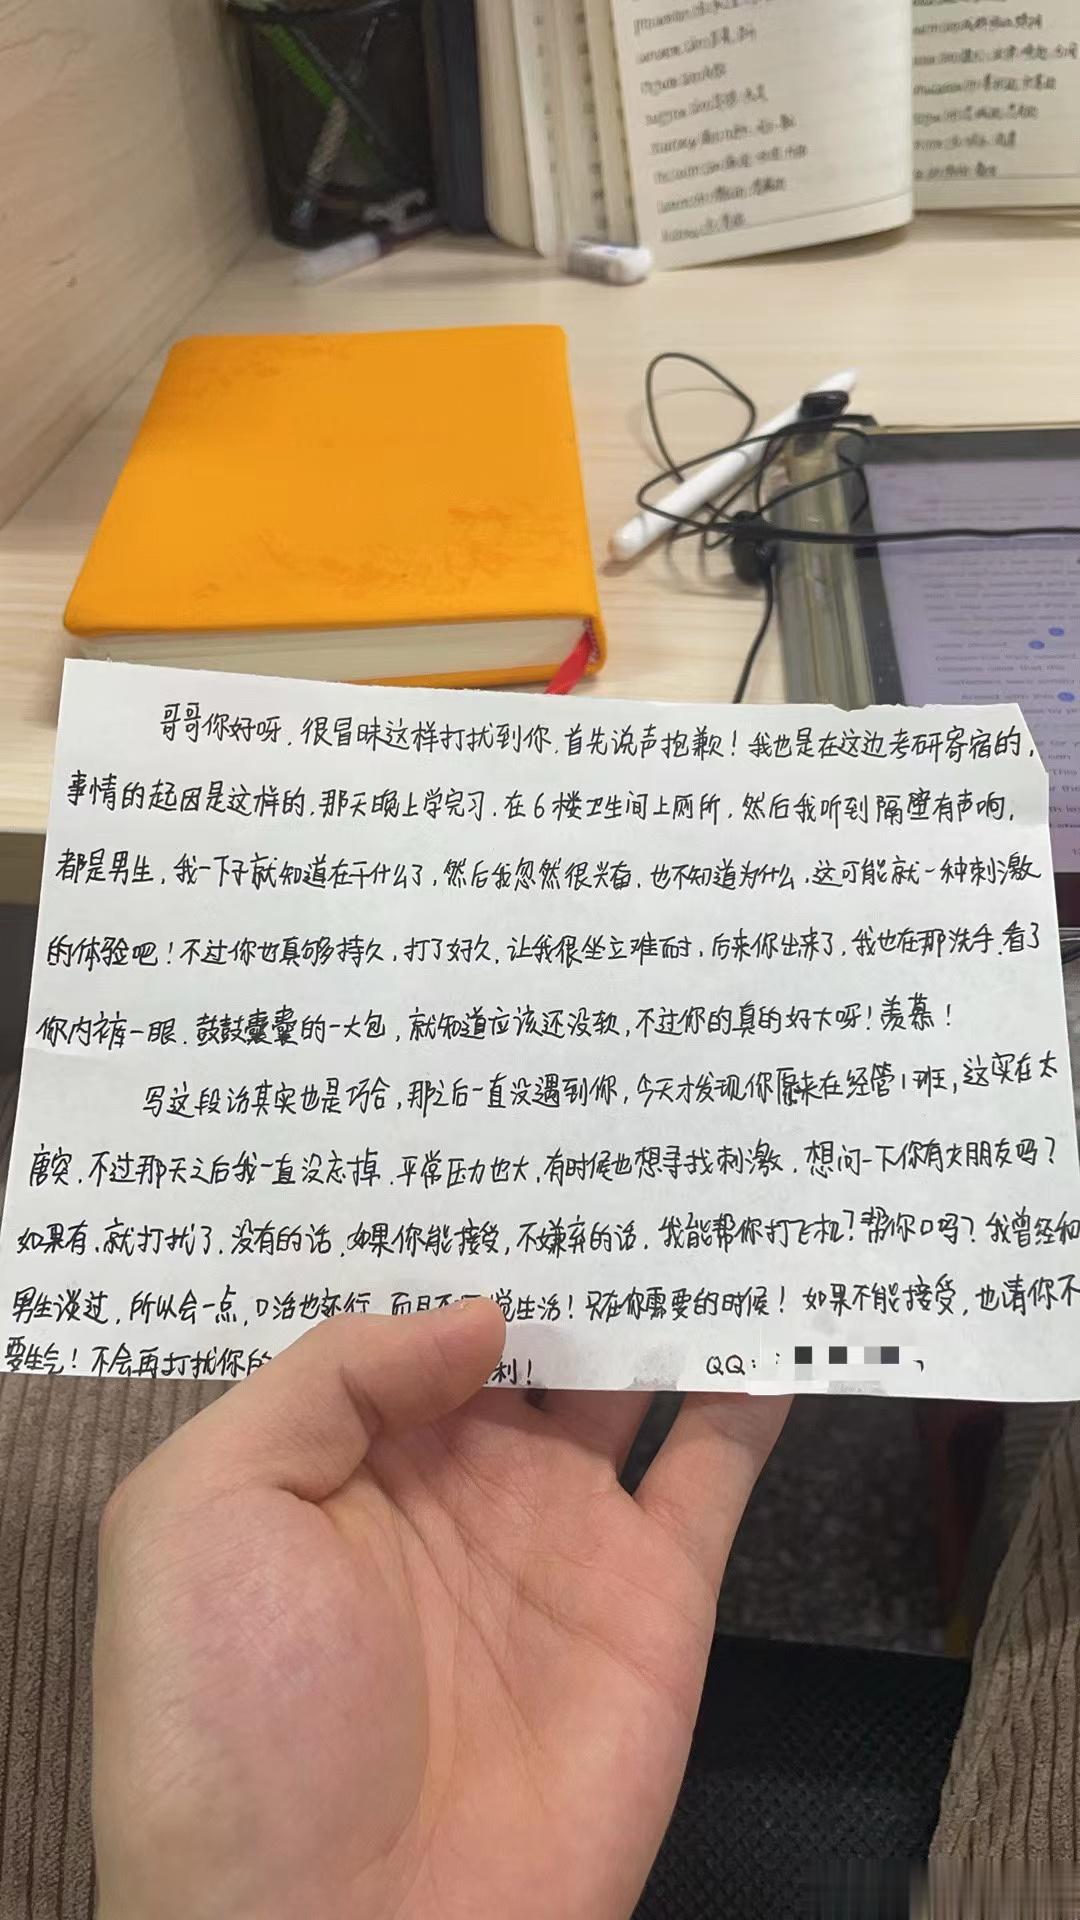 哥哥你好呀，很冒昧这样打扰到你，首先说声抱歉！我也是在这边考研寄宿的，
事情的起因是这样的，那天晚上学完习，在6楼卫生间上厕所，然后我听到隔壁有声响，
都是男生，我一下子就知道在干什么了，然后我忽然很兴奋，也不知道为什么，这可能就一种刺激
的体验吧！不过你也真够持久，打了好久，让我很坐立难耐，后来你出来了，我也在那洗手，看了
你内裤一眼，鼓鼓囊囊的一大包，就知道应该还没软，不过你的真的好大呀！羡慕！
写这段话其实也是巧合，那之后一直没遇到你，今天才发现你原来在经管1班，这实在太
唐突，不过那天之后我一直没忘掉，平常压力也大，有时候也想寻找刺激，想问一下你有女朋友吗？
如果有，就打扰了，没有的话，如果你能接受，不嫌弃的话，我能帮你打飞机？帮你口吗？我曾经和
男生谈过，所以会一点，口活也还行，而且不 生活！只在你需要的时候！如果不能接受，也请你不
要生气！不会再打扰你的 利！ QQ：